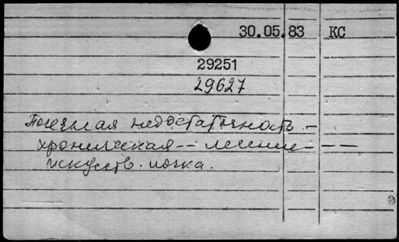 30.05.83 КС
29251
29627
Почечная недостаточность –
хроническая -- лечение – – –
искусств. почка.